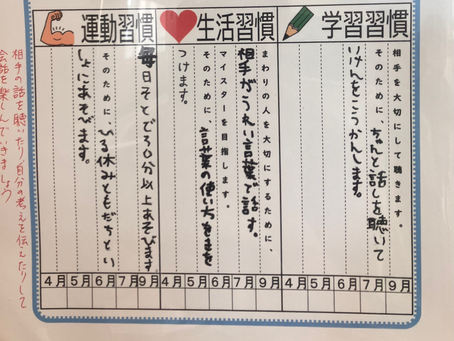 学習習慣
相手を大切にして聴きます。
そのために、ちゃんと話しを聴いて
いけんをこうかんします。
4月 5月 6月 7月 9月
生活習慣
まわりの人を大切にするために、
相手がうれい言葉で話す。
マイスターを目指します。
そのために、言葉の使い方をきを
つけます。
4月 5月 6月 7月 9月
運動習慣
毎日そとで30分以上あそびます
そのために、ひる休みともだちとい
しょにあそびます。
4月 5月 6月 7月 9月
相手の話を聴いたり自分の考えを伝えたりして
会話を楽しんでいきましょう